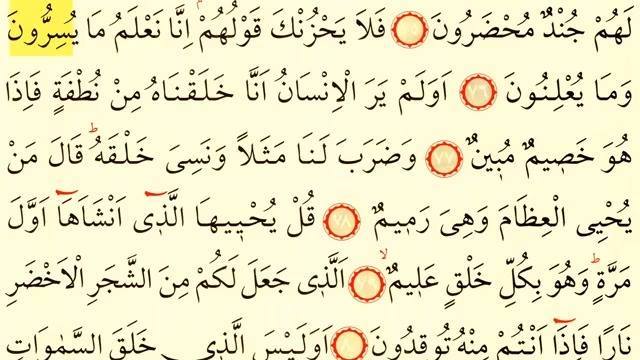 لَهُمْ جُنْدٌ مُحْضَرُونَ ﴿٧٥﴾ فَلَا يَحْزُنْكَ قَوْلُهُمْۘ اِنَّا نَعْلَمُ مَا يُسِرُّونَ
وَمَا يُعْلِنُونَ ﴿٧٦﴾ اَوَلَمْ يَرَ الْاِنْسَانُ اَنَّا خَلَقْنَاهُ مِنْ نُطْفَةٍ فَاِذَا
هُوَ خَصِيمٌ مُبِينٌ ﴿٧٧﴾ وَضَرَبَ لَنَا مَثَلًا وَنَسِيَ خَلْقَهُۜ قَالَ مَنْ
يُحْيِي الْعِظَامَ وَهِيَ رَمِيمٌ ﴿٧٨﴾ قُلْ يُحْيِيهَا الَّذِٓي اَنْشَاَهَٓا اَوَّلَ
مَرَّةٍۜ وَهُوَ بِكُلِّ خَلْقٍ عَلِيمٌۙ ﴿٧٩﴾ اَلَّذِي جَعَلَ لَكُمْ مِنَ الشَّجَرِ الْاَخْضَرِ
نَارًا فَاِذَٓا اَنْتُمْ مِنْهُ تُوقِدُونَ ﴿٨٠﴾ اَوَلَيْسَ الَّذِي خَلَقَ السَّمٰوَاتِ